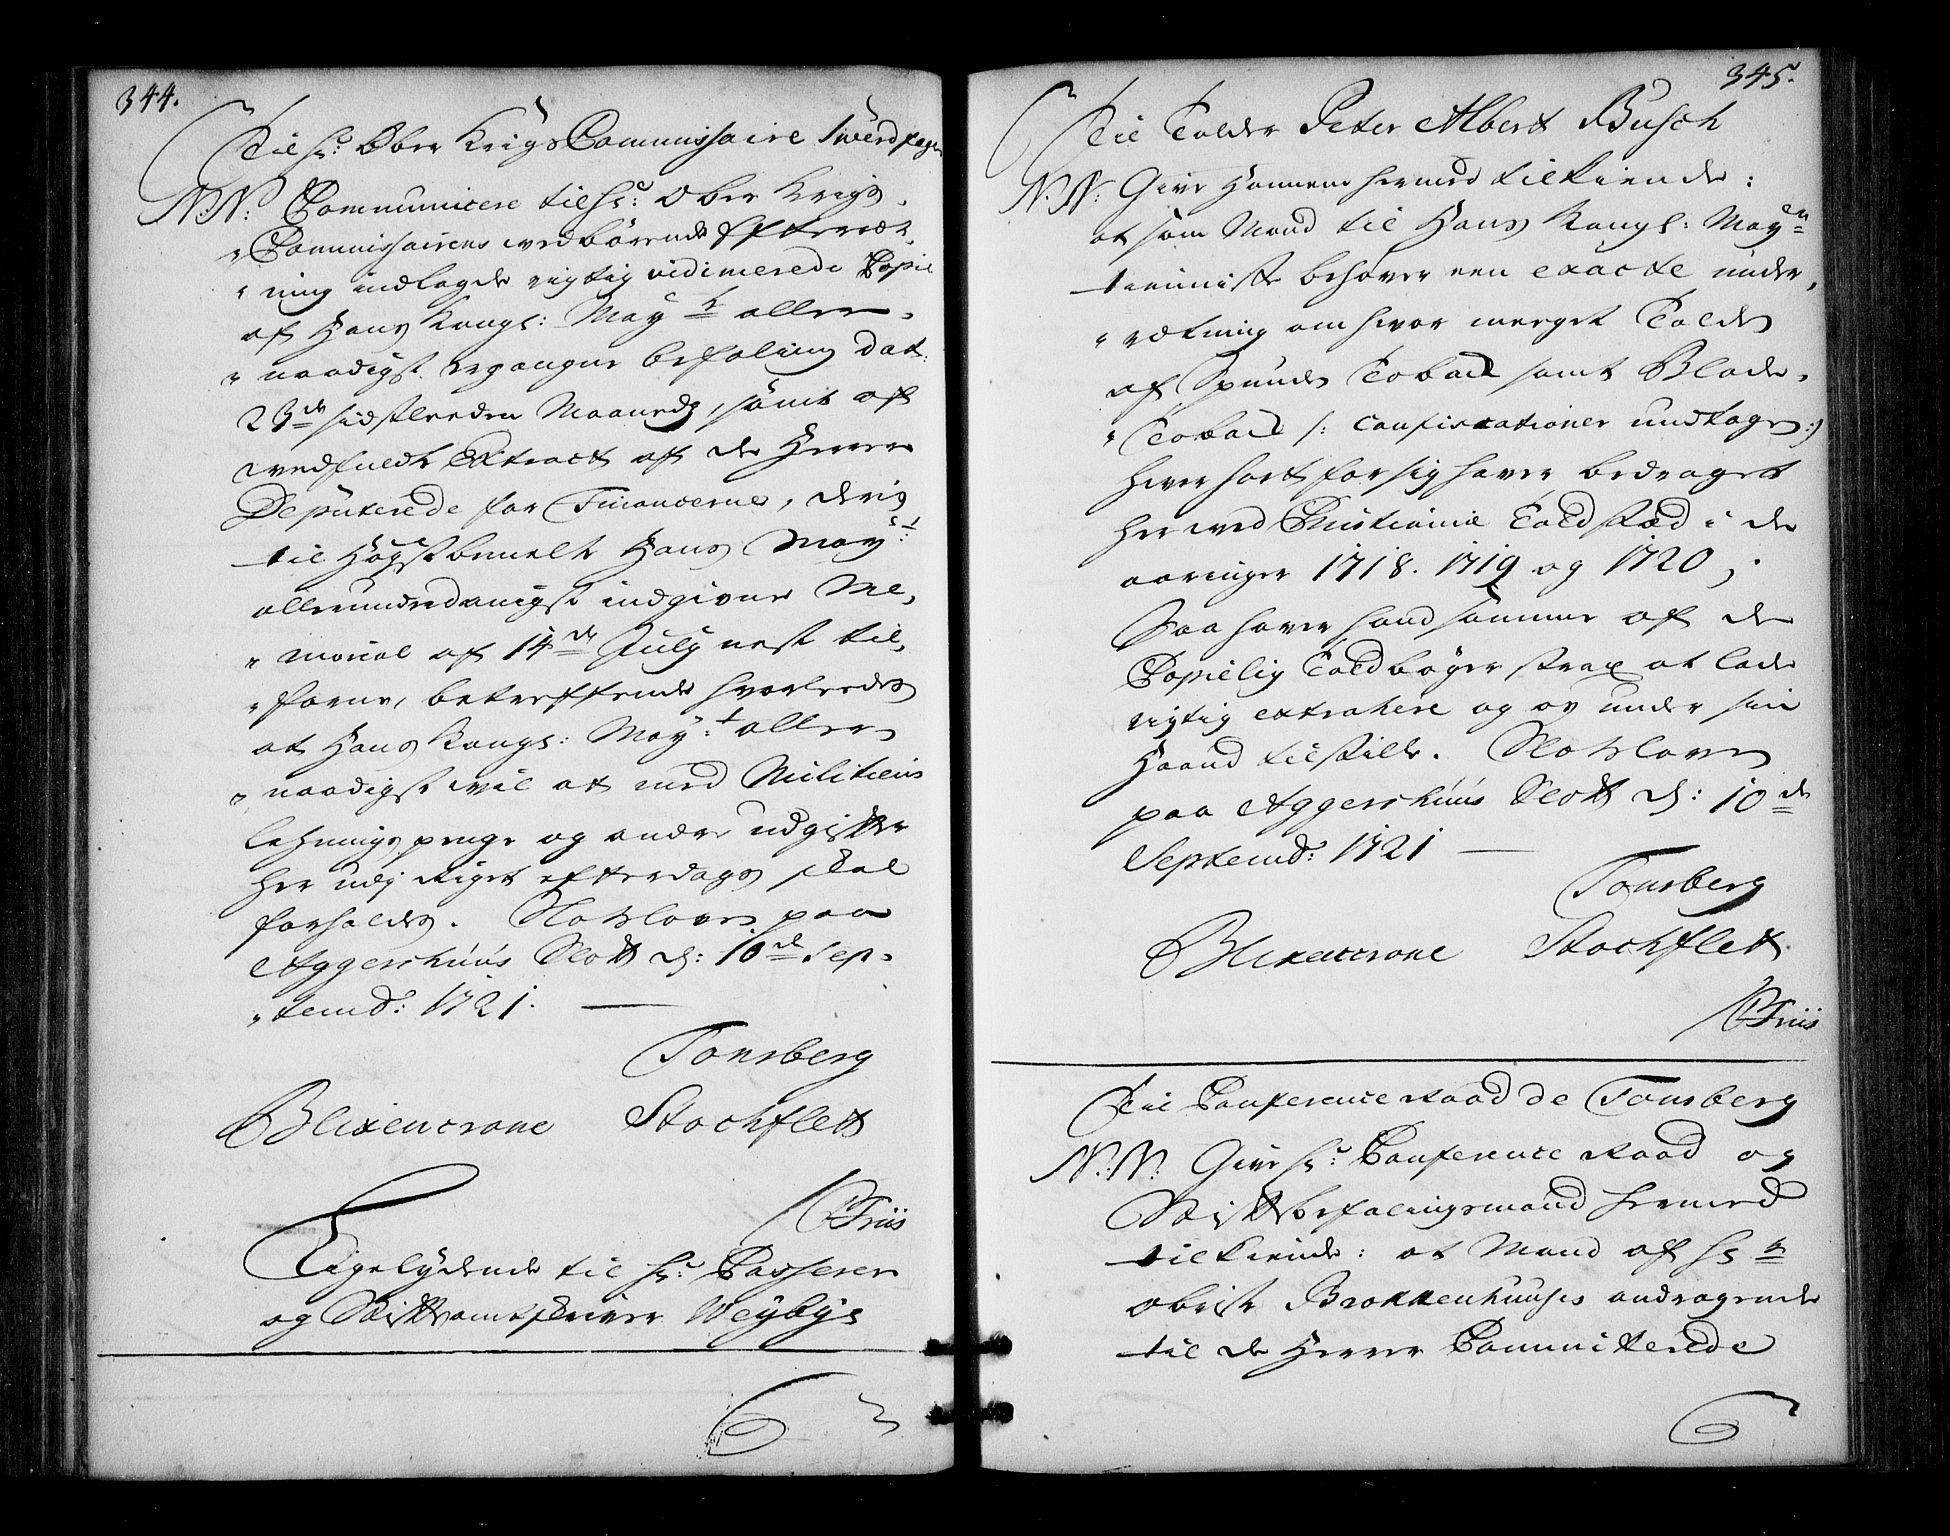 344.
Til Hr: Ober Krigs Commissaire Swerdfeger
N:N: Communicere til Hr: Ober Krigs
"Commissairens wedbörende Efterræt,
"ning indlagde rigtig vidimerede Copie
af Hans Kongl: Mayts aller,
"naadigst ergangne befaling dat:
23de sidstleeden Maanedz, samt af
wedfuldt Extract af de Herrer
Deputerede for Financerne, deris
til Högstbemelte Hans Mayt:
allerunderdanigst indgivne Me,
"morial af 14de July nest til,
"forne, betreffende hvorleedes
at Hans Kongl: Mayt: aller
"naadigst wil at med Militiens
lehnings penge og andre udgifter
her udj Riget efterdags skal
forholdes. Slotzlowen paa
Aggershuus Slott d: 10de Sep,
"temb: 1721.
Tonsberg
Blixencrone Stockflett
Friis
Ligelydende til Hr: Casserer
og Stiftsamtskriver Weybye
345.
Til Tolder Peter Albert Busch
N:N: Give Hannem hermed tilkiende:
at som Mand til Hans Kongl: Mayts
tienniste behøver een exacte under,
"rætning om hvor meeget Tolden
af Spunden Toback samt Blade,
"Toback /: Confiscationer undtagen :/
hver sort for sig haver bedraget
her wed Christiania Told stæd i de
aaringer 1718. 1719 og 1720,
Saa haver hand samme af de
Copielig Toldbøger strax at lade
rigtig extrahere og os under sin
Haand tilstille. Slotzlowen
paa Aggershuus Slott d: 10de
Septemb: 1721
Tonsberg
Blixencrone Stockflett
Friis
Til Conference Raad de Tonsberg
N:N: Give Hr: Conference Raad og
Stiftbefalingsmand hermed
tilkiende: at Mand af Hr
Obriste Brokkenhuuses andragende
til de Herrer Committerede